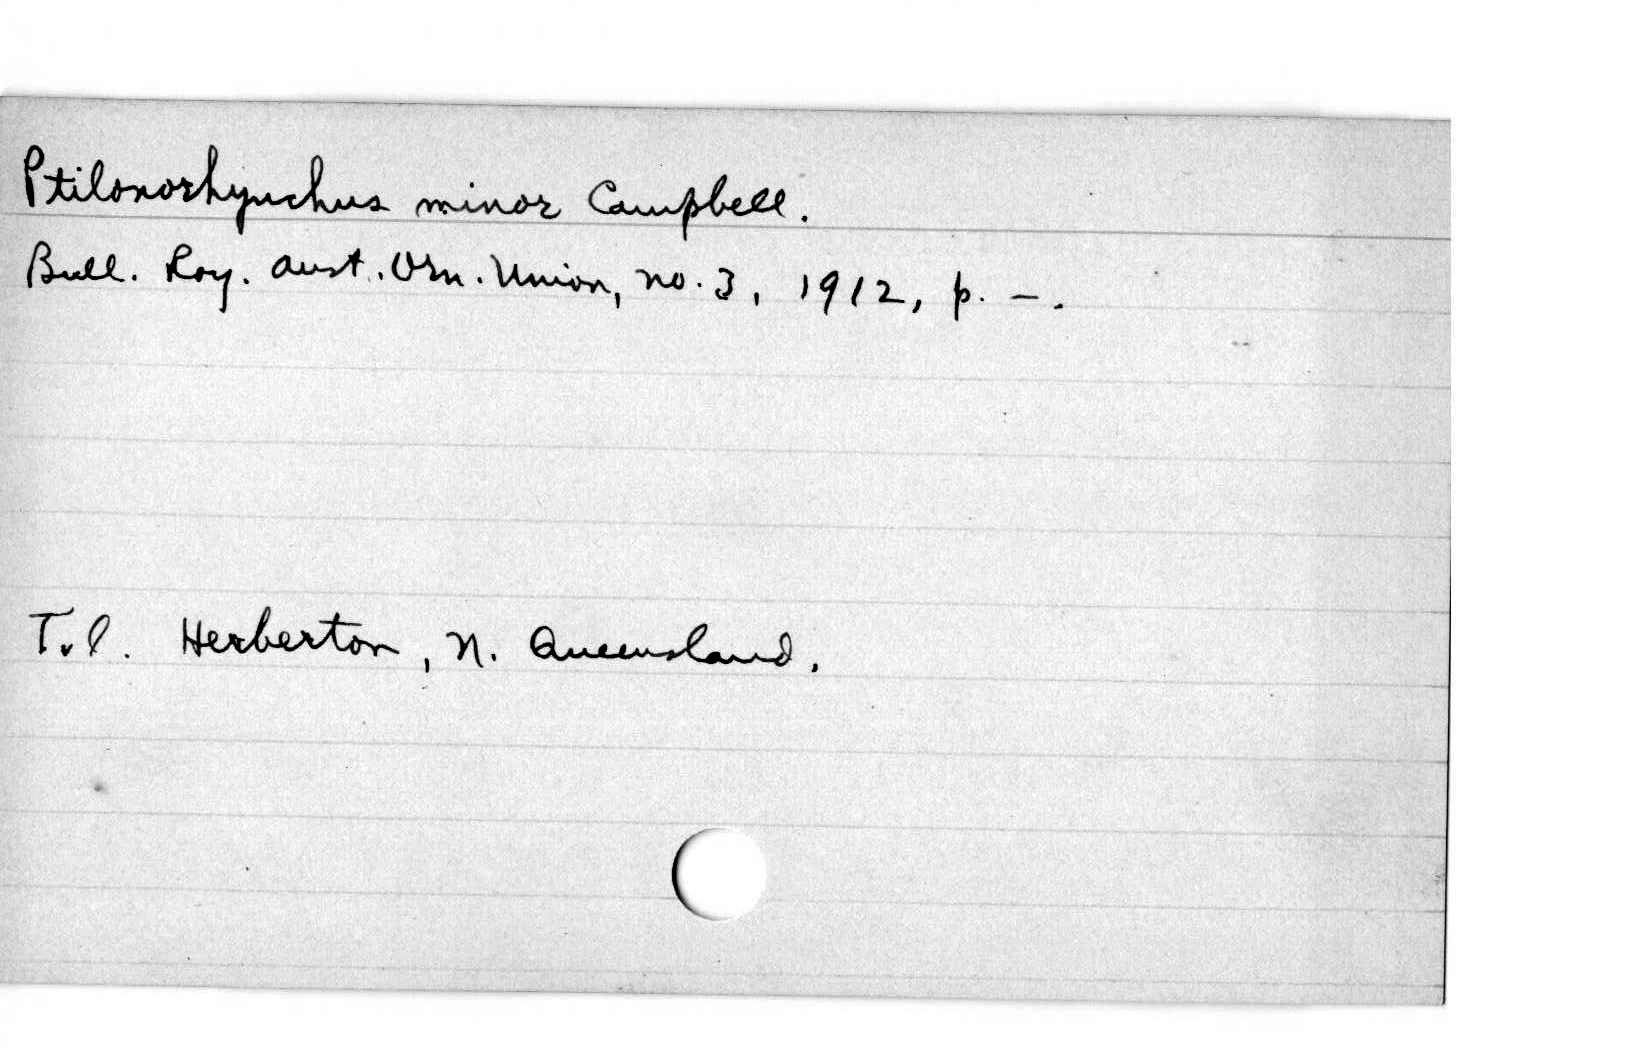 Ptilonorhynchus minor Campbell.
Bull. Roy. Aust. Orn. Union, no. 3, 1912, p. –.
T.l. Herberton, N. Queensland.